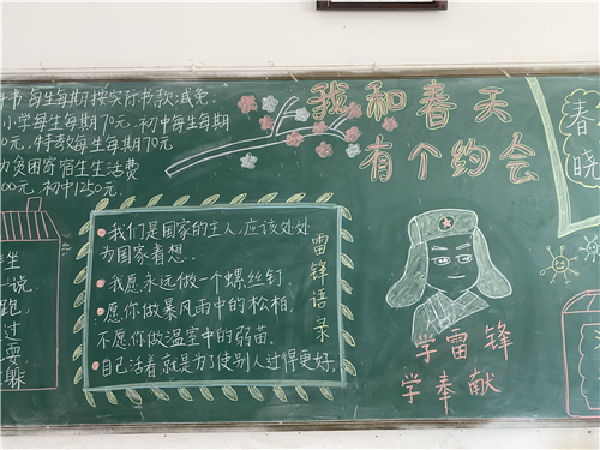 书 每生每期按实际书款减免.
小学每生每期70元.初中每生每期
0元,特教每生每期70元
力贫困寄宿生生活费
00元,初中1250元.
我和春天
有个约会
春
晓
雷锋语录
我们是国家的主人,应该处处
为国家着想.
我愿永远做一个螺丝钉.
愿你做暴风雨中的松柏,
不愿你做温室中的弱苗.
自己活着就是为了使别人过得更好.
学雷锋
学奉献
生
一说
跑,
过
耍
躲